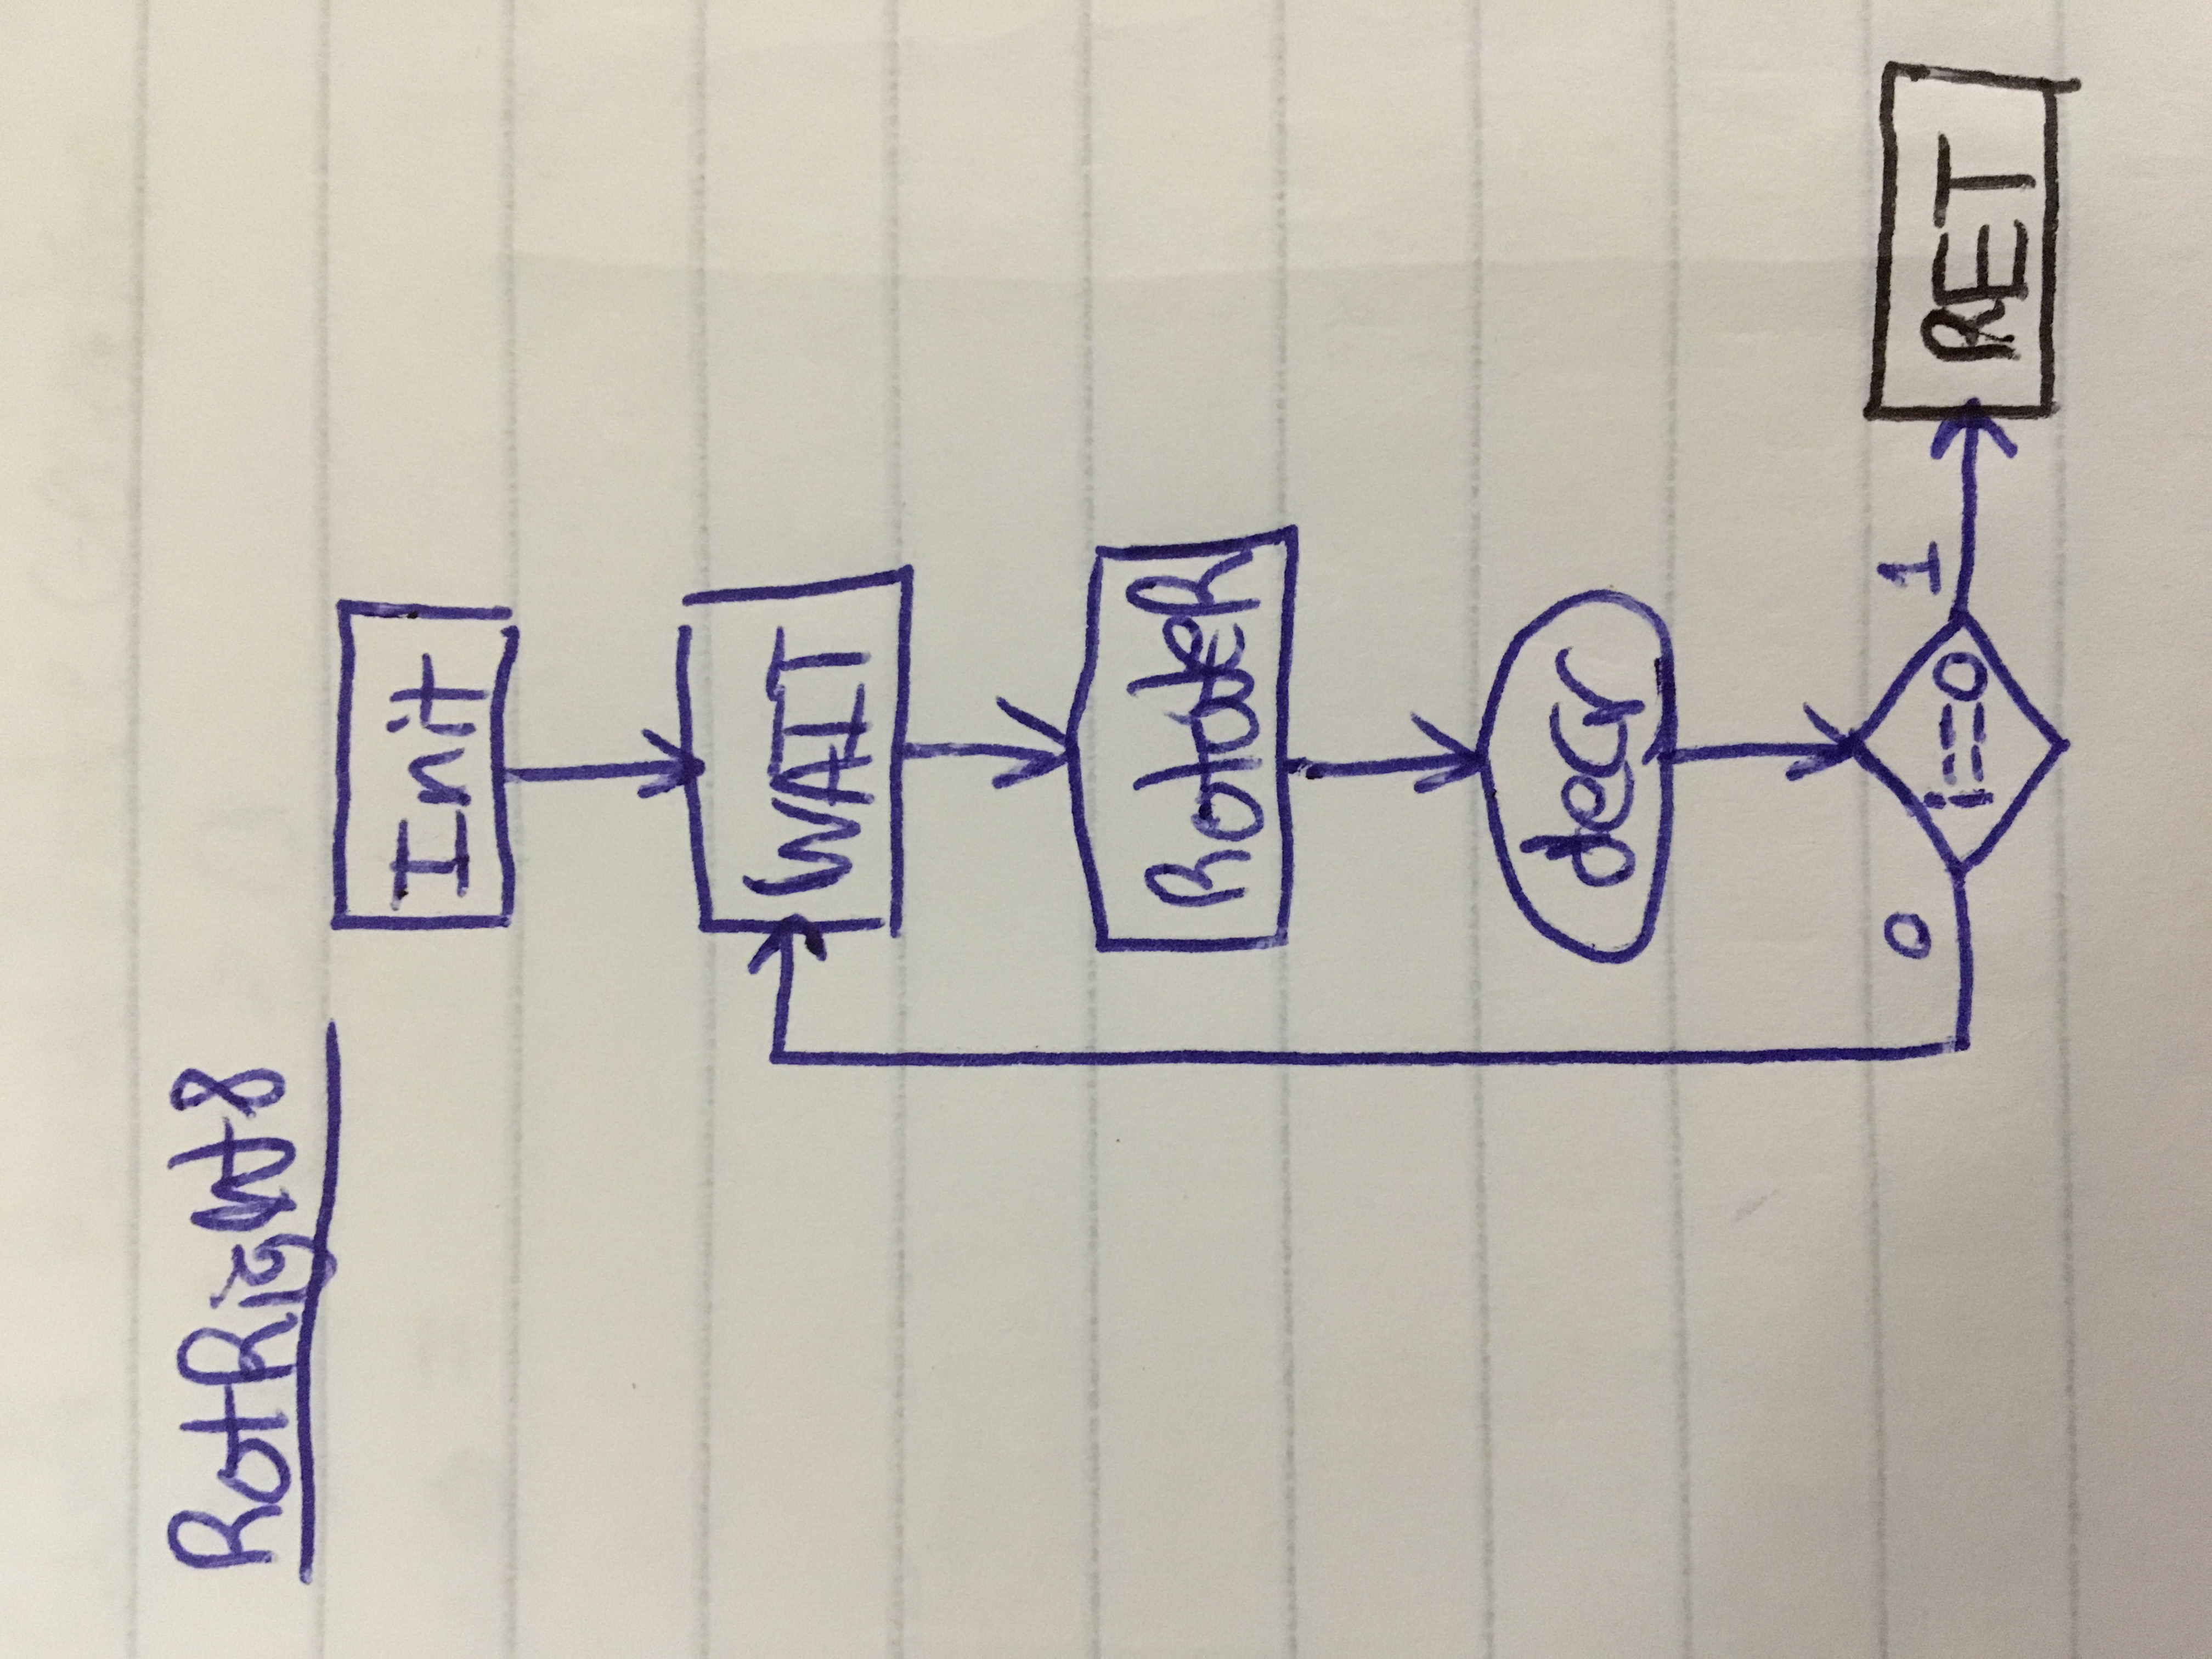 RotRight8
Init
WAIT
RotateR
decr
0
i==0
1
RET